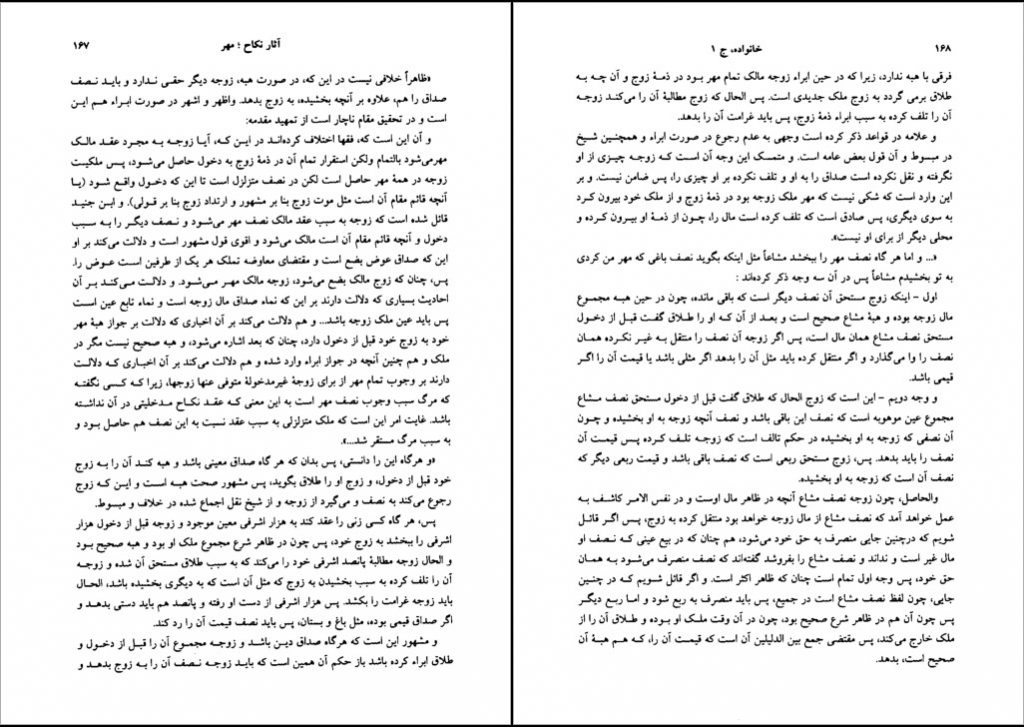 آثار نکاح ؛ مهر ۱۶۷
«ظاهراً خلافی نیست در این که، در صورت هبه، زوجه دیگر حقی ندارد و باید نصف
صداق را هم، علاوه بر آنچه بخشیده، به زوج بدهد. واظهر و اشهر در صورت ابراء هم این
است و در تحقیق مقام ناچار است از تمهید مقدمه:
و آن این است که، فقها اختلاف کرده‌اند در این که، آیا زوجه به مجرد عقد مالک
مهرمی‌شود بالتمام ولکن استقرار تمام آن در ذمهٔ زوج به دخول حاصل می‌شود، پس ملکیت
زوجه در همهٔ مهر حاصل است لکن در نصف متزلزل است تا این که دخول واقع شود (یا
آنچه قائم مقام آن است مثل موت زوج بنا بر مشهور و ارتداد زوج بنا بر قولی). و ابن جنید
قائل شده است که زوجه به سبب عقد مالک نصف مهر می‌شود و نصف دیگر را به سبب
دخول و آنچه قائم مقام آن است مالک می‌شود و اقوی قول مشهور است و دلالت می‌کند بر او
این که صداق عوض بضع است و مقتضای معاوضه تملک هر یک از طرفین است عوض را.
پس، چنان که زوج مالک بضع می‌شود، زوجه مالک مهر می‌شود. و دلالت می‌کند بر آن
احادیث بسیاری که دلالت دارند بر این که نماء صداق مال زوجه است و نماء تابع عین است
پس باید عین ملک زوجه باشد... و هم دلالت می‌کند بر آن اخباری که دلالت بر جواز هبهٔ مهر
خود به زوج خود قبل از دخول دارد، چنان که بعد اشاره می‌شود، و هبه صحیح نیست مگر در
ملک و هم چنین آنچه در جواز ابراء وارد شده و هم دلالت می‌کند بر آن اخباری که دلالت
دارند بر وجوب تمام مهر از برای زوجهٔ غیرمدخولهٔ متوفی عنها زوجها، زیرا که کسی نگفته
که مرگ سبب وجوب نصف مهر است به این معنی که عقد نکاح مدخلیتی در آن نداشته
باشد. غایت امر این است که ملک متزلزلی به سبب عقد نسبت به این نصف هم حاصل بود و
به سبب مرگ مستقر شد...».
«و هرگاه این را دانستی، پس بدان که هر گاه صداق معینی باشد و هبه کند آن را به زوج
خود قبل از دخول، و زوج او را طلاق بگوید، پس مشهور صحت هبه است و این که زوج
رجوع می‌کند به نصف و می‌گیرد از زوجه و از شیخ نقل اجماع شده در خلاف و مبسوط.
پس، هر گاه کسی زنی را عقد کند به هزار اشرفی معین موجود و زوجه قبل از دخول هزار
اشرفی را ببخشد به زوج خود، پس چون در ظاهر شرع مجموع ملک او بود و هبه صحیح بود
و الحال زوجه مطالبهٔ پانصد اشرفی خود را می‌کند که به سبب طلاق مستحق آن شده و زوجه
آن را تلف کرده به سبب بخشیدن به زوج که مثل آن است که به دیگری بخشیده باشد، الحال
باید زوجه غرامت را بکشد. پس هزار اشرفی از دست او رفته و پانصد هم باید دستی بدهد و
اگر صداق قیمی بوده، مثل باغ و بستان، پس باید نصف قیمت آن را رد کند.
و مشهور این است که هرگاه صداق دین باشد و زوجه مجموع آن را قبل از دخول و
طلاق ابراء کرده باشد باز حکم آن همین است که باید زوجه نصف آن را به زوج بدهد و
۱۶۸ خانواده، ج ۱
فرقی با هبه ندارد، زیرا که در حین ابراء زوجه مالک تمام مهر بود در ذمهٔ زوج و آن چه به
طلاق برمی گردد به زوج ملک جدیدی است. پس الحال که زوج مطالبهٔ آن را می‌کند زوجه
آن را تلف کرده به سبب ابراء ذمهٔ زوج، پس باید غرامت آن را بدهد.
و علامه در قواعد ذکر کرده است وجهی به عدم رجوع در صورت ابراء و همچنین شیخ
در مبسوط و آن قول بعض عامه است. و متمسک این وجه آن است که زوجه چیزی از او
نگرفته و نقل نکرده است صداق را به او و تلف نکرده بر او چیزی را، پس ضامن نیست. و بر
این وارد است که شکی نیست که مهر ملک زوجه بود در ذمهٔ زوج و از ملک خود بیرون کرد
به سوی دیگری، پس صادق است که تلف کرده است مال را، چون از ذمهٔ او بیرون کرده و
محلی دیگر از برای او نیست».
«... و اما هر گاه نصف مهر را ببخشد مشاعاً مثل اینکه بگوید نصف باغی که مهر من کردی
به تو بخشیدم مشاعاً پس در آن سه وجه ذکر کرده‌اند :
اول – اینکه زوج مستحق آن نصف دیگر است که باقی مانده، چون در حین هبه مجموع
مال زوجه بوده و هبهٔ مشاع صحیح است و بعد از آن که او را طلاق گفت قبل از دخول
مستحق نصف مشاع همان مال است، پس اگر زوجه آن نصف را منتقل به غیر نکرده همان
نصف را وا می‌گذارد و اگر منتقل کرده باید مثل آن را بدهد اگر مثلی باشد یا قیمت آن را اگر
قیمی باشد.
و وجه دویم – این است که زوج الحال که طلاق گفت قبل از دخول مستحق نصف مشاع
مجموع عین موهوبه است که نصف این باقی باشد و نصف آنچه زوجه به او بخشیده و چون
آن نصفی که زوجه به او بخشیده در حکم تالف است که زوجه تلف کرده پس قیمت آن
نصف را باید بدهد. پس، زوج مستحق ربعی است که نصف باقی باشد و قیمت ربعی دیگر که
نصف آن است که زوجه به او بخشیده.
والحاصل، چون زوجه نصف مشاع آنچه در ظاهر مال اوست و در نفس الامر کاشف به
عمل خواهد آمد که نصف مشاع از مال زوجه خواهد بود منتقل کرده به زوج، پس اگر قائل
شویم که درچنین جایی منصرف به حق خود می‌شود، هم چنان که در بیع عینی که نصف او
مال غیر است و نداند و نصف مشاع را بفروشد گفته‌اند که نصف منصرف می‌شود به همان
حق خود، پس وجه اول تمام است چنان که ظاهر اکثر است. و اگر قائل شویم که در چنین
جایی، چون لفظ نصف مشاع است در جمیع، پس باید منصرف به ربع شود و اما ربع دیگر
پس چون آن هم در ظاهر شرع صحیح بود، چون در آن وقت ملک او بوده و طلاق آن را از
ملک خارج می‌کند، پس مقتضی جمع بین الدلیلین آن است که قیمت آن را، که هم هبهٔ آن
صحیح است، بدهد.